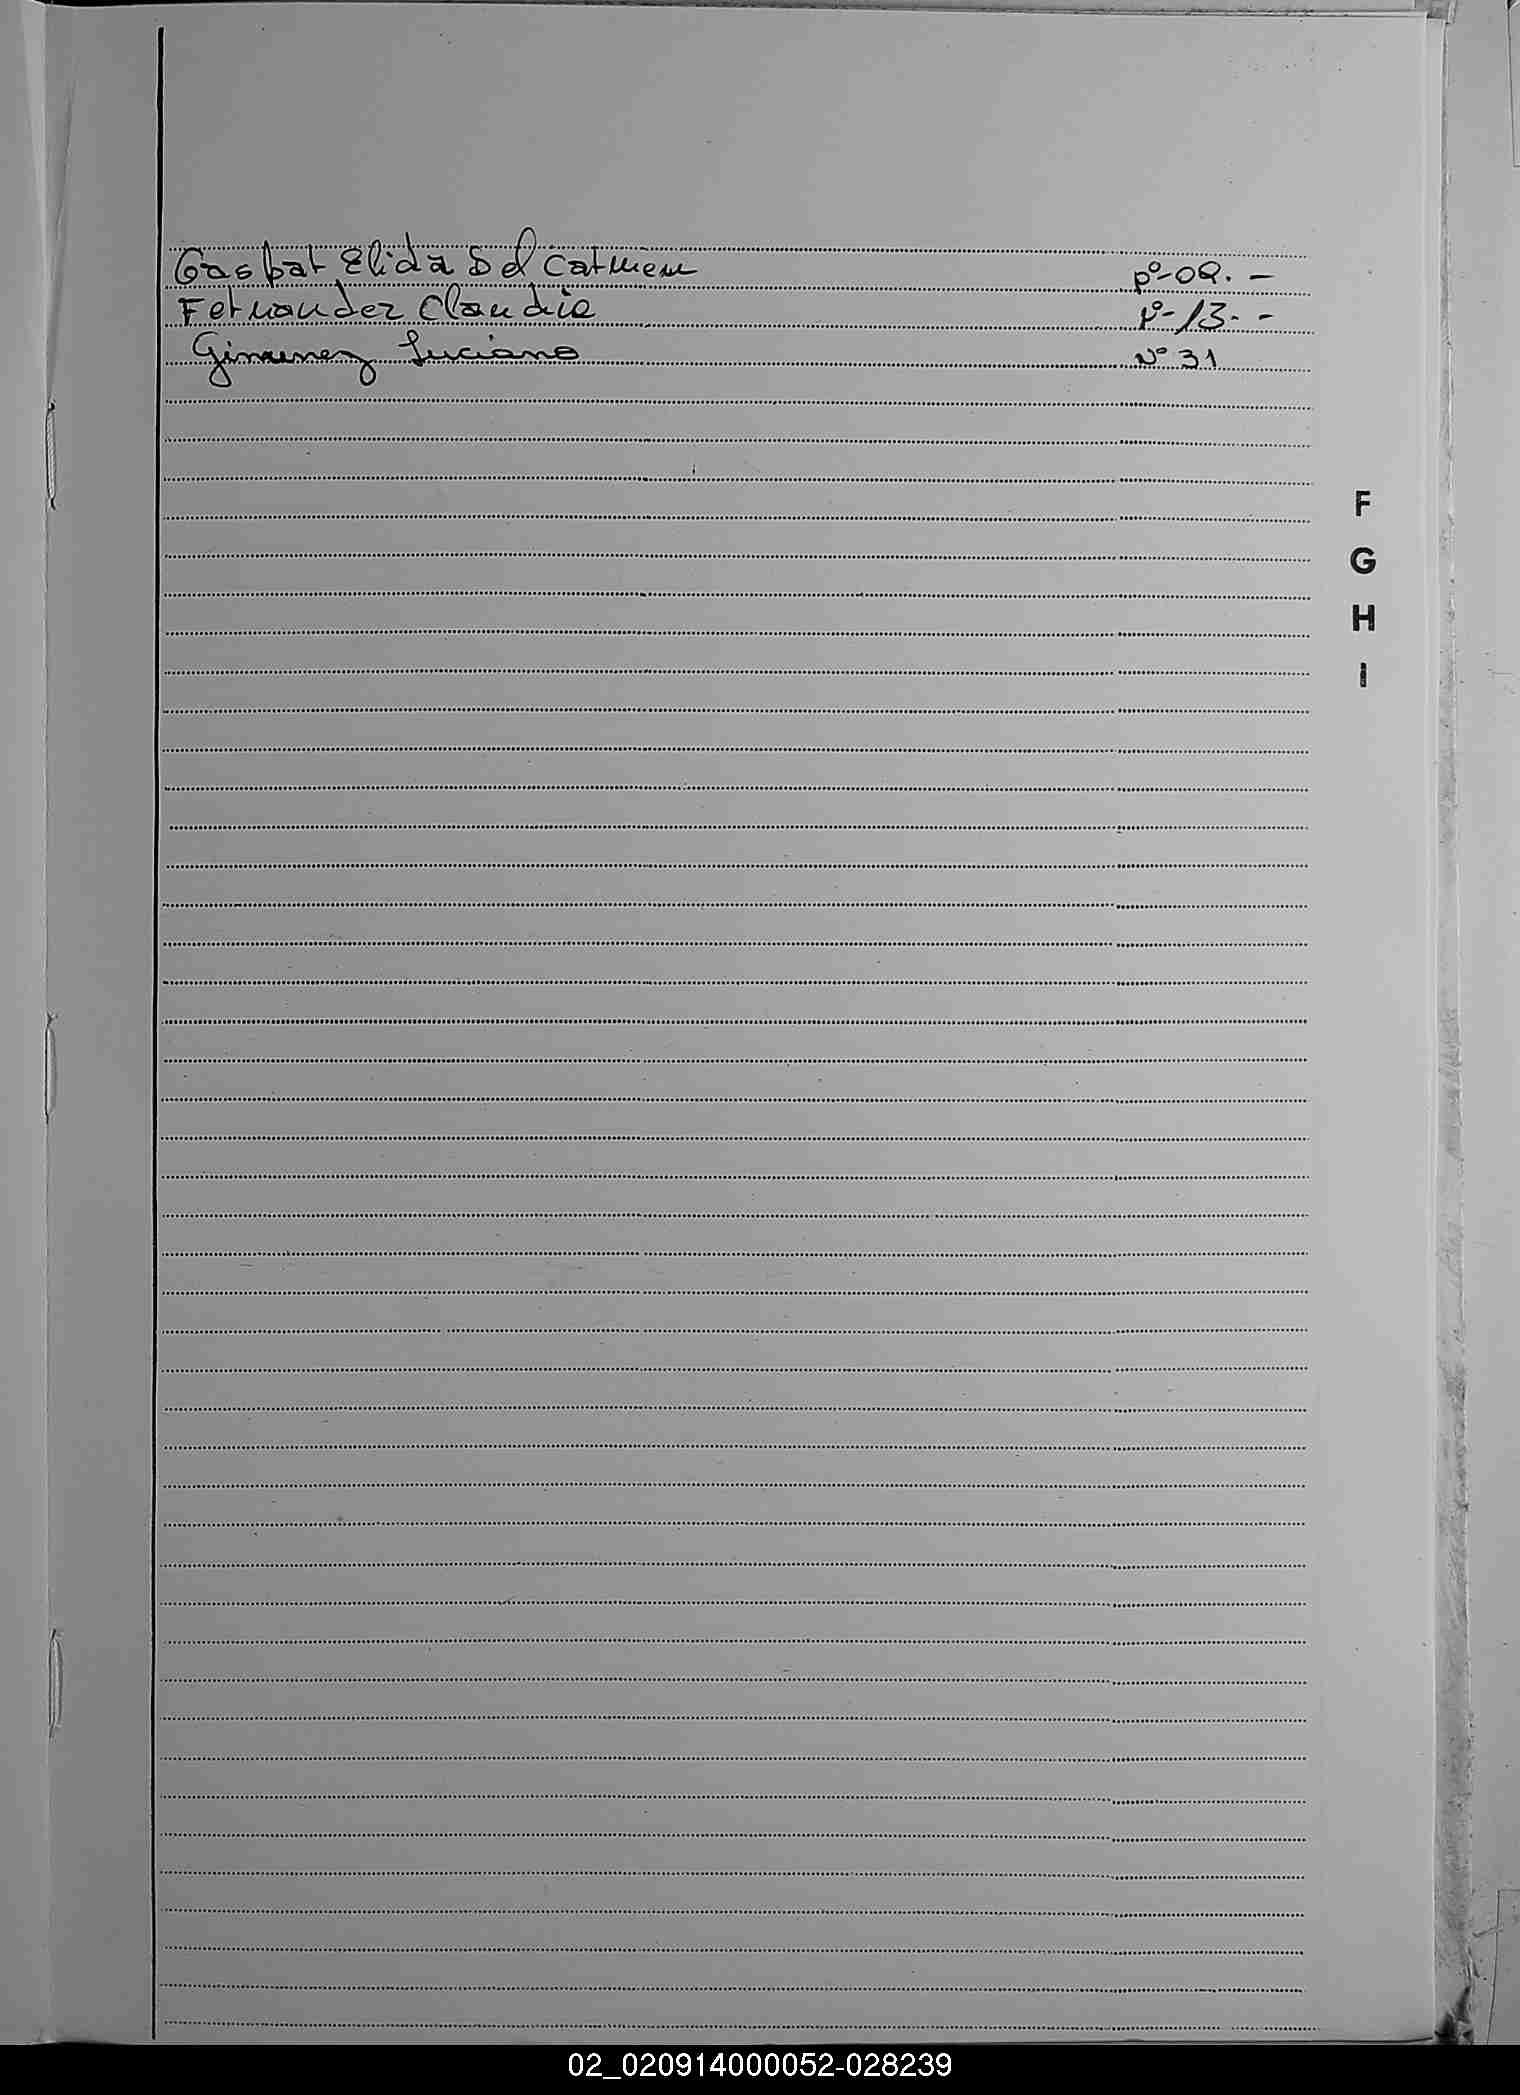 Gaspar Elida Del Carmen Pº-02.-
Fernandez Claudia Pº-13.-
Gimenez Luciano Nº 31
F
G
H
I
02_020914000052-028239